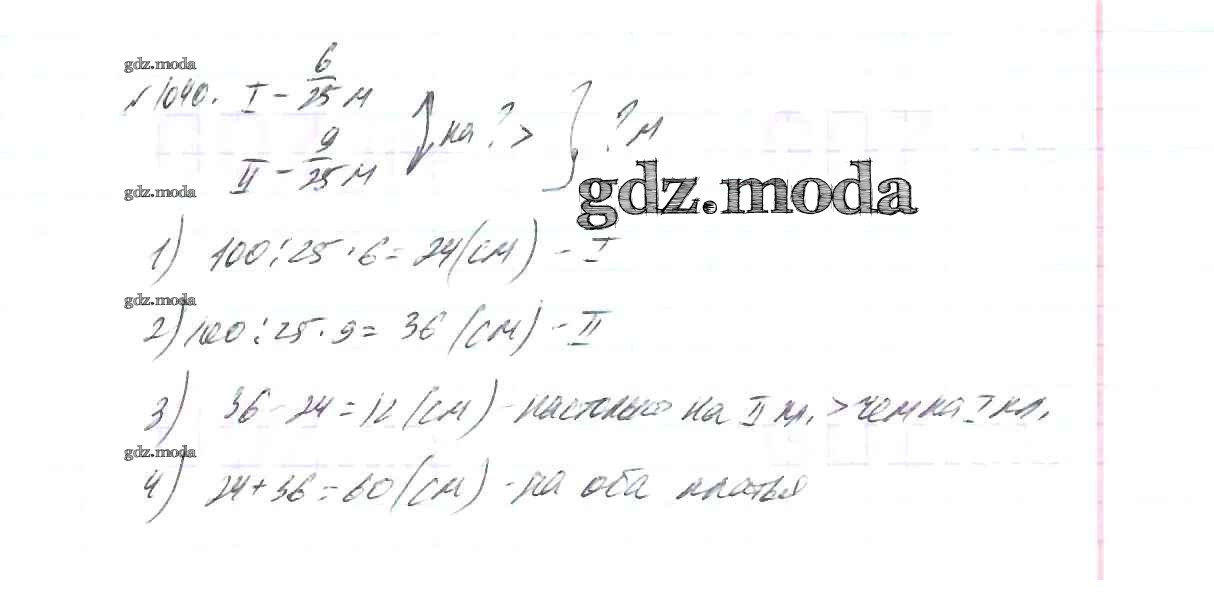 gdz.moda
№1040. I - 6/25 м
II - 9/25 м } на ? > } ? м
gdz.moda
gdz.moda
1) 100:25·6=24(см) - I
gdz.moda
2) 100:25·9= 36 (см) - II
3) 36-24=12(см) - настолько на II пл. > чем на I пл.
gdz.moda
4) 24+36=60(см) - на оба платья